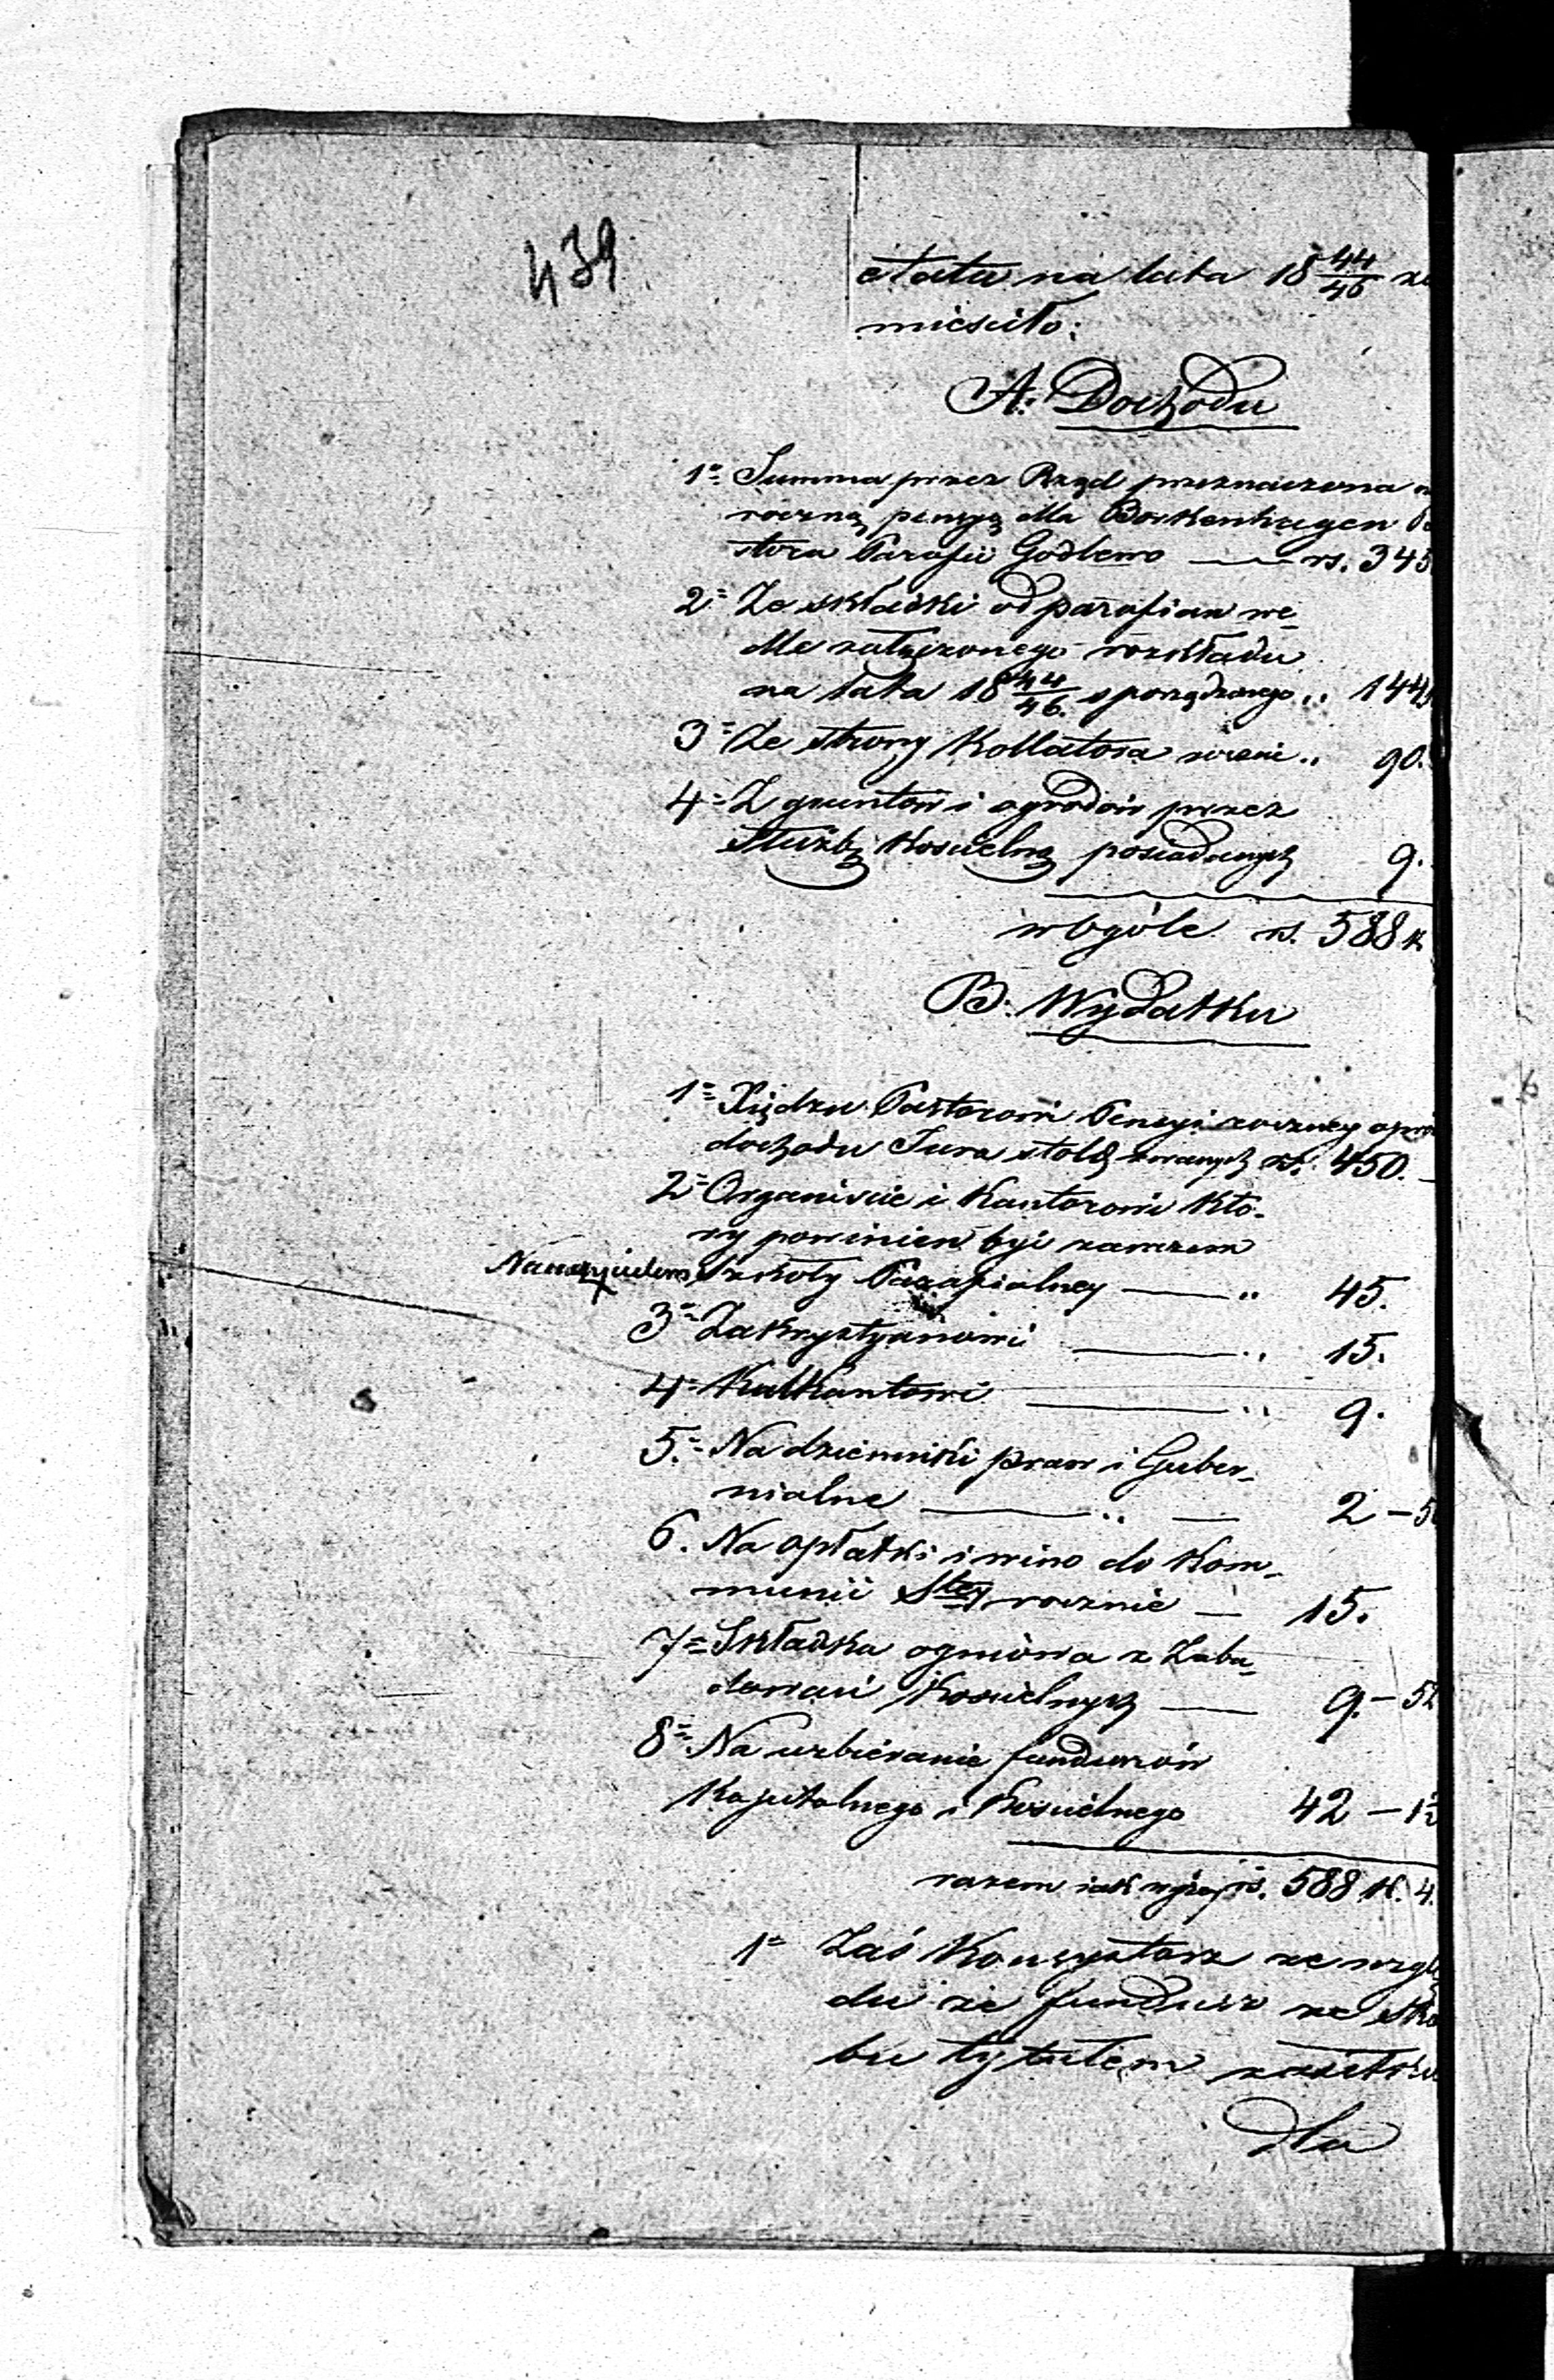 439
etatu na lata 18 44/46 za
mieścito:
A. Dochodu
1= Summa przez Rząd przeznaczona
roczną pensyą dla Borkenhagen
stora Parafii Godlewo — rs. 345
2= Ze składki od parafian we-
dle załączonego rozkładu
na lata 18 44/46. sporządzonego „ 144
3= Ze strony Kollatora rocznie „ 90.
4= Z gruntów i ogrodów przez
Służbę Kościelną posiadanych 9.
w ogóle rs. 588 k
B. Wydatku
1= Xiędzu Pastorowi Pensyi roczney opró
dochodu Jura stolæ zwanych rs. 450. –
2= Organiscie i Kantorowi któ-
ry powinien być zarazem
Nauczycielem Szkoły Parafialney — „ 45.
3= Zakrystyanowi — „ 15.
4= Kalkantowi — „ 9.
5.= Na dzienniki praw i Guber-
nialne — „ — 2 – 5
6. Na opłatki i wino do Kom-
munii Stey rocznie — 15.
7= Składka ogniowa z Zabu-
dowań Kościelnych — 9. – 52
8= Na uzbieranie funduszów
Kapitalnego i Kościelnego 42 – 1
razem iak wyżey rs. 588 k. 4.
1= Zaś Konsystorz ze wzglę
du że fundusz ze Ska
bu tytułem zasiłku
dla